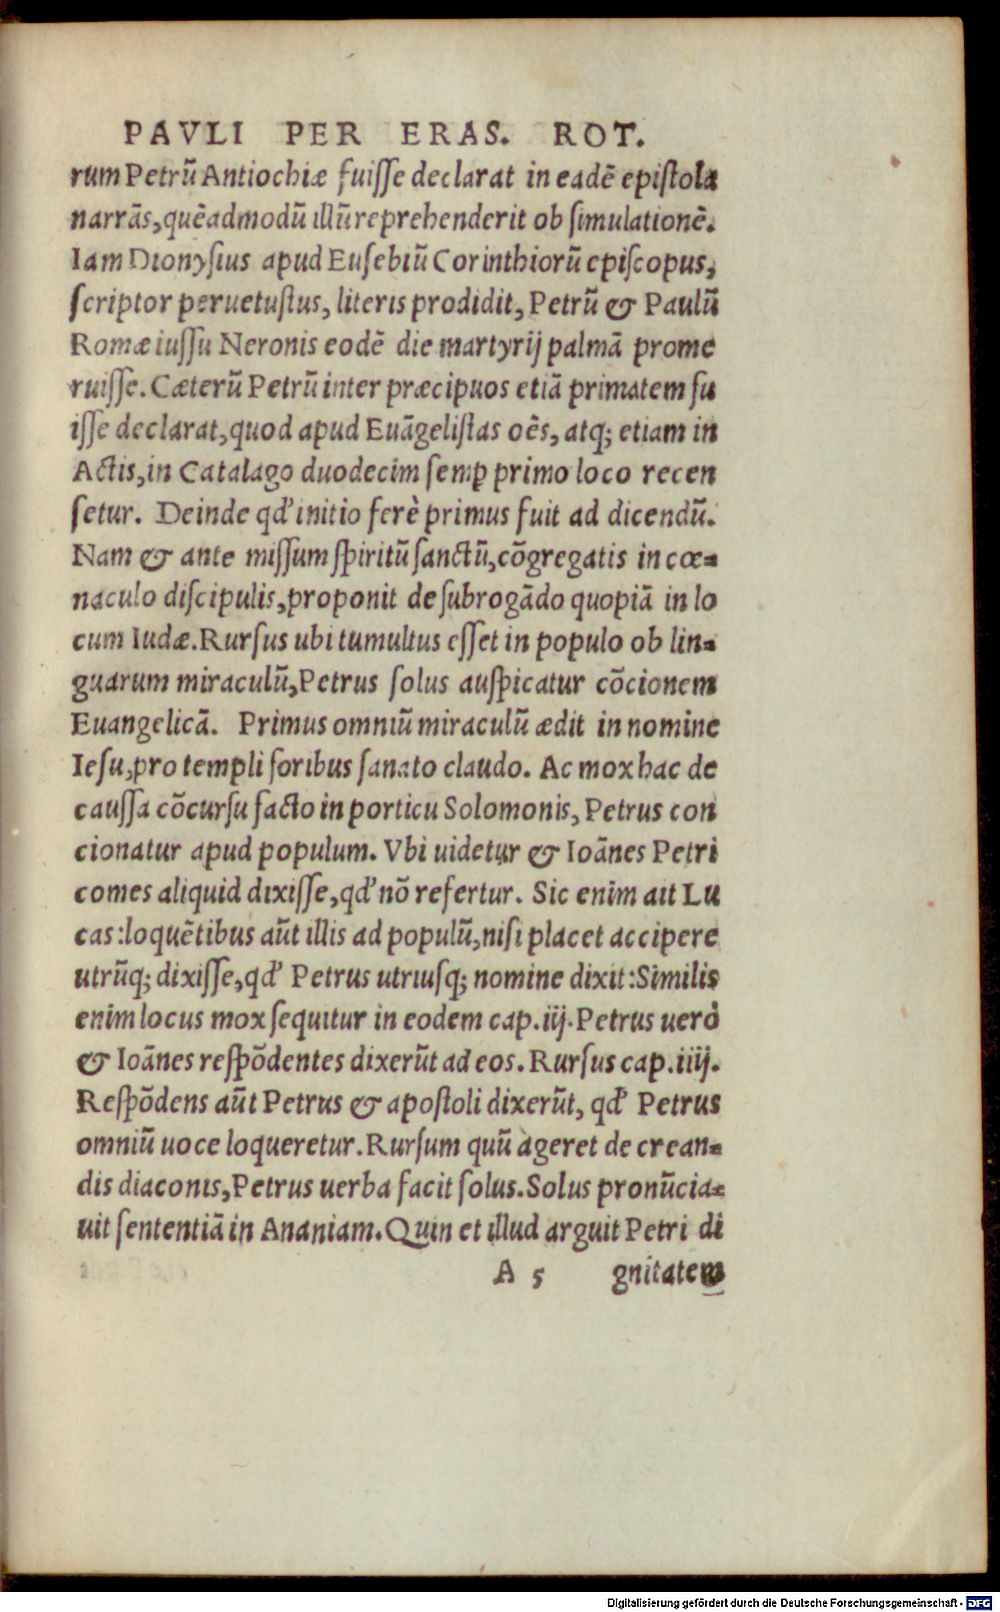 PAVLI PER ERAS. ROT.
rum Petrũ Antiochiæ fuiſſe declarat in eadẽ epiſtola
narrãs, quẽadmodũ illũ reprehenderit ob ſimulationẽ.
Iam Dionyſius apud Euſebiũ Corinthiorũ epiſcopus,
ſcriptor peruetuſtus, literis prodidit, Petrũ & Paulũ
Romæ iuſſu Neronis eodẽ die martyrij palmã prome
ruiſſe. Cæterũ Petrũ inter præcipuos etiã primatem fu
iſſe declarat, quod apud Euãgeliſtas oẽs, atq; etiam in
Actis, in Catalago duodecim ſemꝑ primo loco recen
ſetur. Deinde qđ initio ferè primus fuit ad dicendũ.
Nam & ante miſſum ſpiritũ ſanctũ, cõgregatis in cœ-
naculo diſcipulis, proponit de ſubrogãdo quopiã in lo
cum Iudæ. Rurſus ubi tumultus eſſet in populo ob lin-
guarum miraculũ, Petrus ſolus auſpicatur cõcionem
Euangelicã. Primus omniũ miraculũ ædit in nomine
Ieſu, pro templi foribus ſanato claudo. Ac mox hac de
cauſſa cõcurſu facto in porticu Solomonis, Petrus con
cionatur apud populum. Vbi uidetur & Ioãnes Petri
comes aliquid dixiſſe, qđ nõ refertur. Sic enim ait Lu
cas: loquẽtibus aũt illis ad populũ, niſi placet accipere
utrũq; dixiſſe, qđ Petrus utriuſq; nomine dixit: Similis
enim locus mox ſequitur in eodem cap. iij. Petrus uerò
& Ioãnes reſpõdentes dixerũt ad eos. Rurſus cap. iiij.
Reſpõdens aũt Petrus & apoſtoli dixerũt, qđ Petrus
omniũ uoce loqueretur. Rurſum quũ ageret de crean-
dis diaconis, Petrus uerba facit ſolus. Solus pronũcia-
uit ſententiã in Ananiam. Quin et illud arguit Petri di
A 5 gnitatem
Digitalisierung gefördert durch die Deutsche Forschungsgemeinschaft - DFG